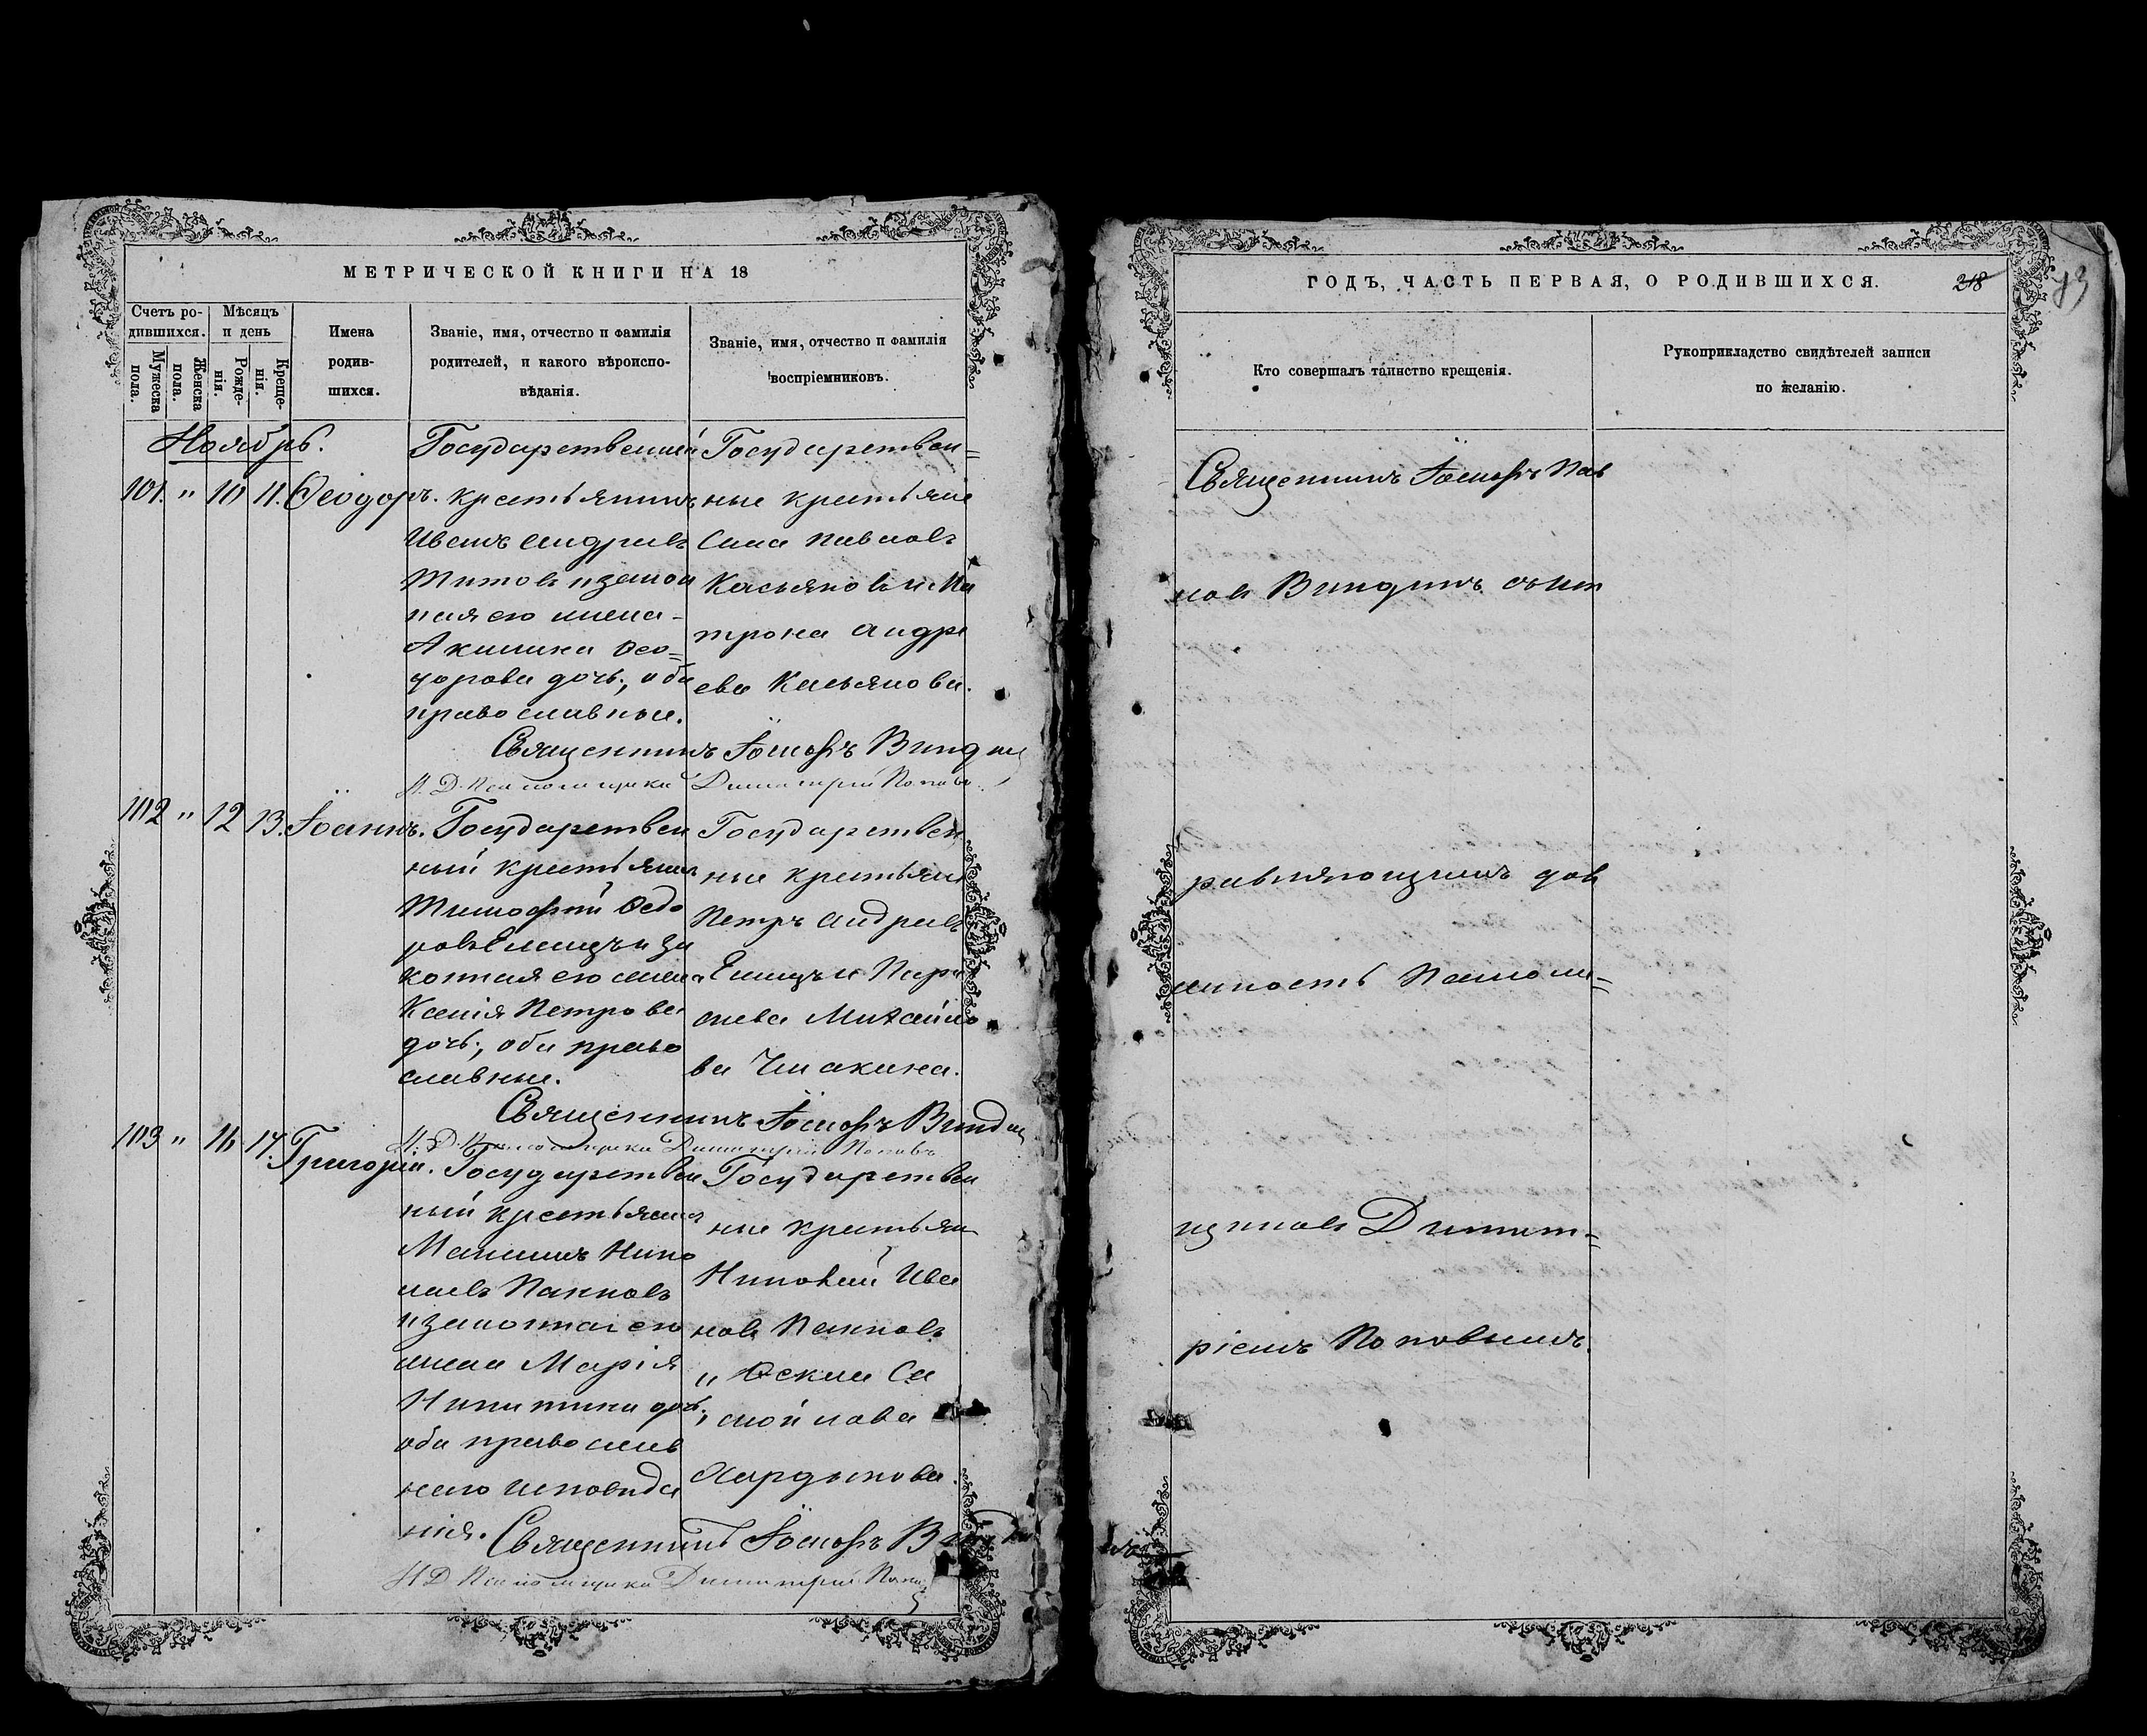 МЕТРИЧЕСКОЙ КНИГИ НА 18
Счетъ ро-
дившихся.
Мѣсяцъ
и день
Мужеска
пола.
Женска
пола.
Рожде-
нія.
Креще-
нія.
Имена
родив-
шихся.
Званіе, имя, отчество и фамилія
родителей, и какого вѣроиспо-
вѣданія.
Званіе, имя, отчество и фамилія
воспріемниковъ.
Ноябрь.
101. " 10 11. Ѳеодоръ.
Государственный
крестьянинъ
Иванъ Андреевъ
Титовъ и закон
ная его жена
Акилина Ѳео=
дорова дочь, оба
православные.
Государствен=
ные крестьяне
Савва Павловъ
Касьяновъ и Ма
трона Андре
ева Касьянова.
Священникъ Іосифъ Виндин
И. Д. Псаломщика Димитрій Поповъ.
102 " 12 13. Іоаннъ.
Государствен
ный крестьянинъ
Тимофей Ѳедо
ровъ Елецъ и за
конная его жена
Ксенія Петрова
дочь, оба право
славные.
Государствен
ные крестьяне
Петръ Андреевъ
Елецъ и Пара
скева Михайло
ва
Священникъ Іосифъ Виндин
И. Д. Псаломщика Димитрій Поповъ
103 " 16 17. Григорій.
Государствен
ный крестьянинъ
Нико
лаевъ
и законная его
жена Марія
Никитина дочь,
оба православ
наго исповѣда
нія.
Государствен
ные крестьяне
Ива
новъ
и Ѳекла Са
мойлова
Священникъ Іосифъ
И Д Псаломщика Димитрій
ГОДЪ, ЧАСТЬ ПЕРВАЯ, О РОДИВШИХСЯ.
218
Кто совершалъ таинство крещенія.
Рукоприкладство свидѣтелей записи
по желанію.
Священникъ Іосифъ Пав
ловъ Виндинъ съ исп
равляющимъ дол
жность Псалом=
щикомъ Димит=
ріемъ Поповымъ.